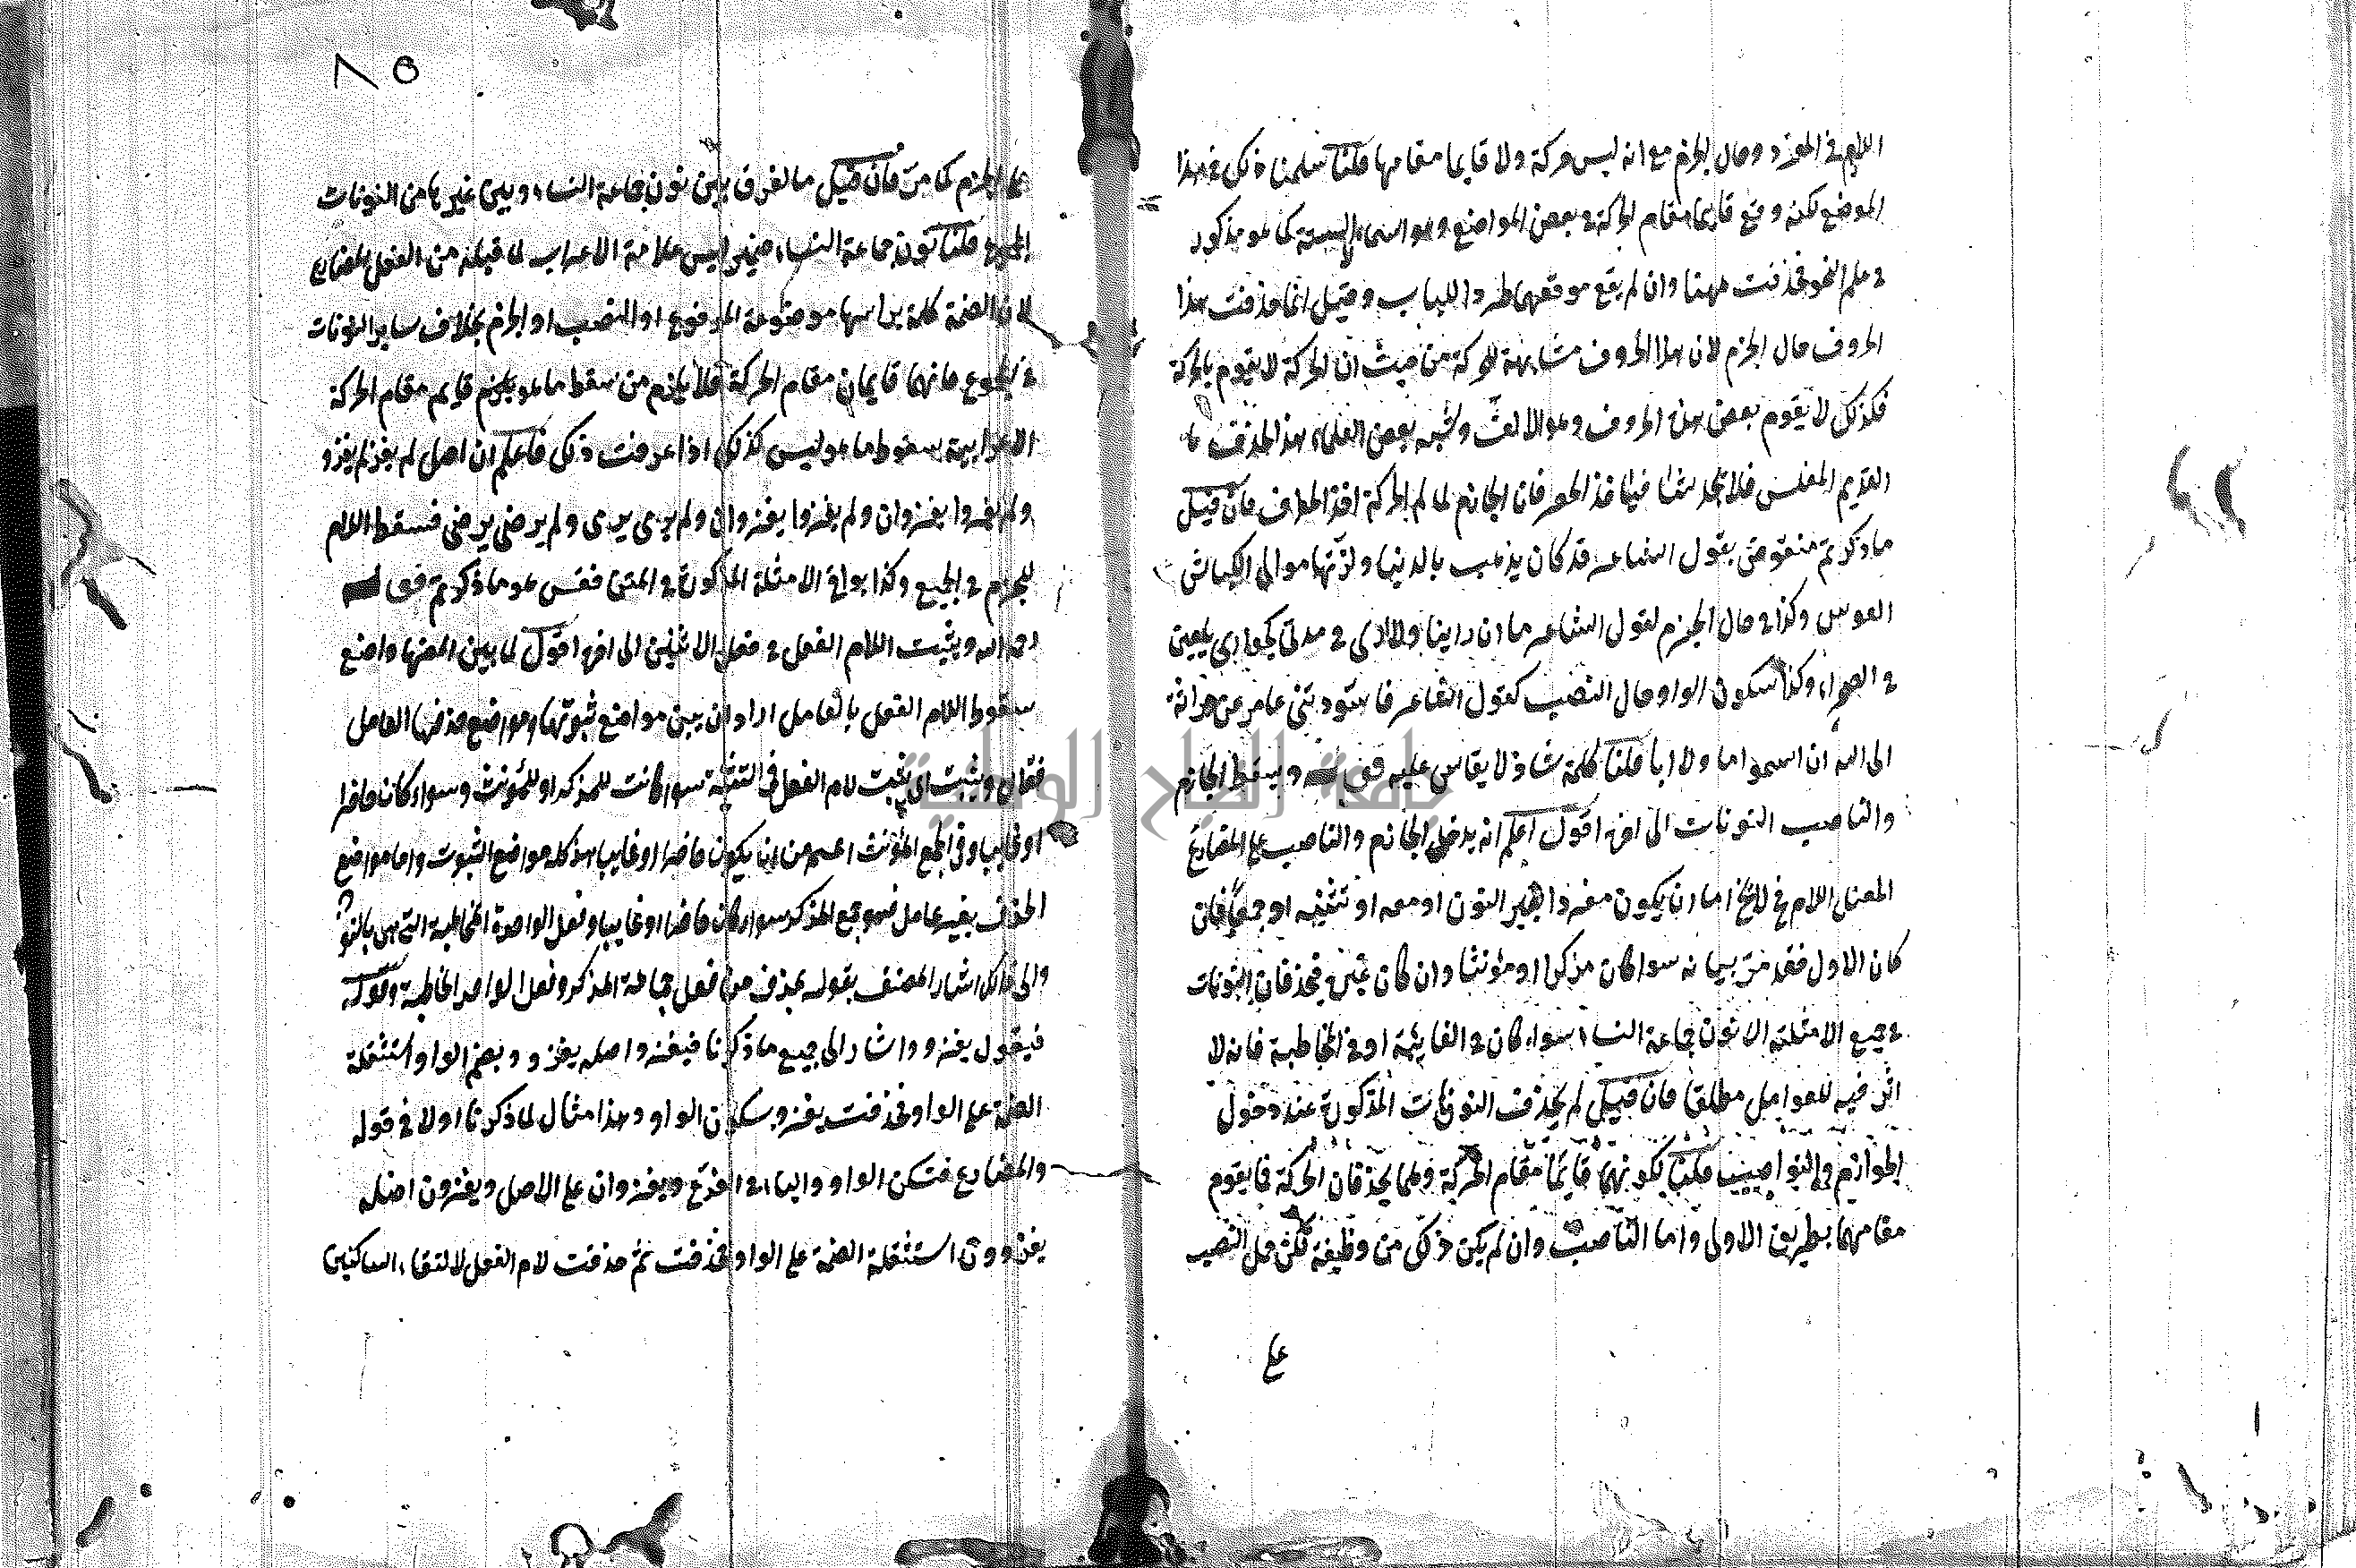 اللام في المفرد وحال الجزم مع انه ليس حركة ولا قايما مقامها قلنا سلمنا ذلك في هذا
الموضع لكنه وقع قايما مقام الحركة في بعض المواضع وهو اسماء الستة كما هو مذكور
في علم النحو فحذفت ههنا وان لم يقع موقعهما طردا للباب وقيل انما حذفت هذا
الحروف حال الجزم لان هذا الحروف مشابهة للحركة من حيث ان الحركة لا يقوم بالحركة
فكذلك لا يقوم بعض هذه الحروف وهو الالف وشبه بعض العلماء هذا الحذف
الغريم المفلس فلا يجد شئا فان الجازم لما لم الحركة اخذ الحرف فان قيل
ما ذكرتم منقوض بقول الشاعر قد كان يذهب بالدنيا ولذتها موالي الكباش
العوس وكذا في حال الجزم لقول الشاعر ما ان راينا ولا ارى في مدتي كجواري يلعبن
في الصحراء وكذا سكون الواو حال النصب كقول الشاعر فما سودتني عامر عن وراثة
الى الله ان اسمو اما ولا ابا قلنا كلمة شاذ لا يقاس عليه قوله ويسقط الجازم
والناصب النونات الى اخره اقول اعلم انه يدخل الجازم والناصب على المضارع
المعتل اللام في لا يخ اما ان يكون مفردا بغير النون او معه او تثنية او جمعا فان
كان الاول فقد مر بيانه سواء كان مذكرا او مؤنثا وان كان غيره فيحذفان النونات
في جميع الامثلة الا نون جماعة النساء سواء كان في الغايبة او في المخاطبة فانه لا
اثر فيه للعوامل مطلقا فان قيل لم يحذف النونات المذكورة عند دخول
الجوازم والنواصب قلنا لكونهما قايما مقام الحركة وهما يحذفان الحركة فما يقوم
مقامهما بطريق الاولى واما الناصب وان لم يكن ذلك من وظيفة لكن حمل النصب
على
٨٥
على الجزم كما مر فان قيل ما الفرق بين نون جماعة النساء وبين غيرها من النونات
الجموع قلنا نون جماعة النساء ضمير ليس علامة الاعراب لما قبله من الفعل المضارع
لان الضمة كلمة براسها موضوعة المرفوع او النصب او الجزم بخلاف ساير النونات
في الجموع فانهما قايمان مقام الحركة فلا يلزم من سقط ما هو قايم مقام الحركة
الاعرابية سقوط ما هو ليس كذلك اذا عرفت ذلك فاعلم ان اصل لم يغز لم يغزو
ولم يغزوا يغزوان ولم يغزوا يغزوان ولم يرمي يرمى ولم يرضى يرضى فسقط اللام
للجزم في الجميع وكذا بواقي الامثلة المذكورة في المتن فقس هو ما ذكرتم قوله
رحمه الله ويثبت اللام الفعل في فعل الاثنين الى اخره اقول لما بين المصنف واضع
سقوط اللام الفعل بالعامل اراد ان يبين مواضع ثبوتها ومواضع حذفها العامل
فقال ويثبت اي يثبت لام الفعل في التثنية سواء كانت للمذكر او للمؤنث وسواء كان حاضرا
او غايبا وفي الجمع المؤنث اعم من ان يكون حاضرا او غايبا هذا كله مواضع الثبوت واما مواضع
الحذف بغير عامل فهو جمع المذكر سواء كان حاضرا او غايبا وفعل الواحدة المخاطبة التي هي بالنو
والى ذلك اشار المصنف بقوله يحذف من فعل جماعة المذكر وفعل الواحد المخاطبة وقوله
فيقول يغزو واشار الى جميع ما ذكرنا فيغزو اصله يغزو بضم الواو استثقلة
الضمة على الواو فحذفت يغزو بسكون الواو وهذا مثال لما ذكرنا اولا في قوله
والمضارع فتكن الواو والياء ويغزوان على الاصل ويغزون اصله
يغزوون استثقلة الضمة على الواو فحذفت ثم حذفت لام الفعل لالتقاء الساكنين
جامعة النجاح الوطنية